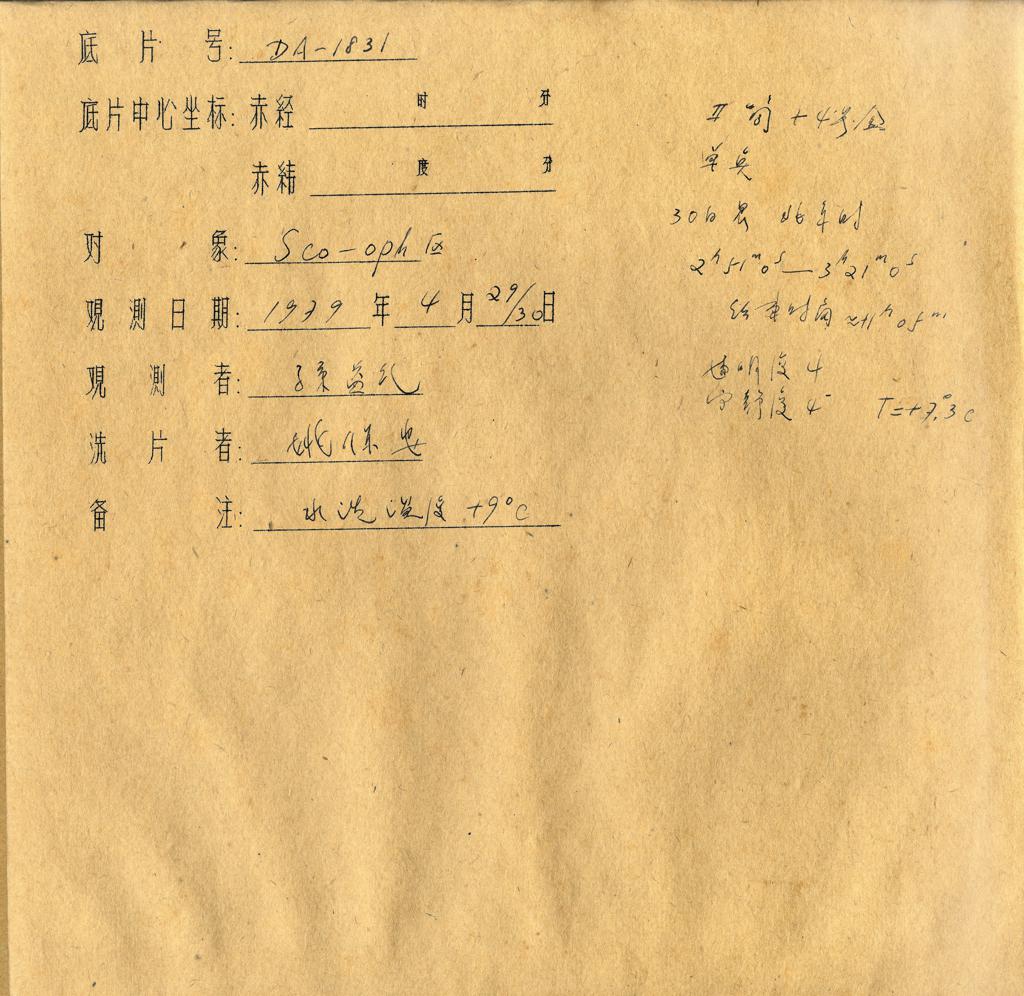 底片号: DA-1831
底片中心坐标: 赤经 时 分
赤纬 度 分
对象: Sco-oph 区
观测日期: 1979 年 4 月 29/30 日
观测者: 孙益礼
洗片者: 姚保安
备注: 水洗温度 +9°C
30日晨 北京时
2ʰ51ᵐ0ˢ — 3ʰ21ᵐ0ˢ
结束时角 ≈+1ʰ05ᵐ
透明度 4
宁静度 4⁻ T=+7.°3C